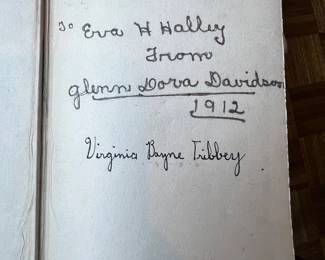 To Eva H Halley
From
Glenn Dora Davidson
1912
Virginia Bayne Tribbey